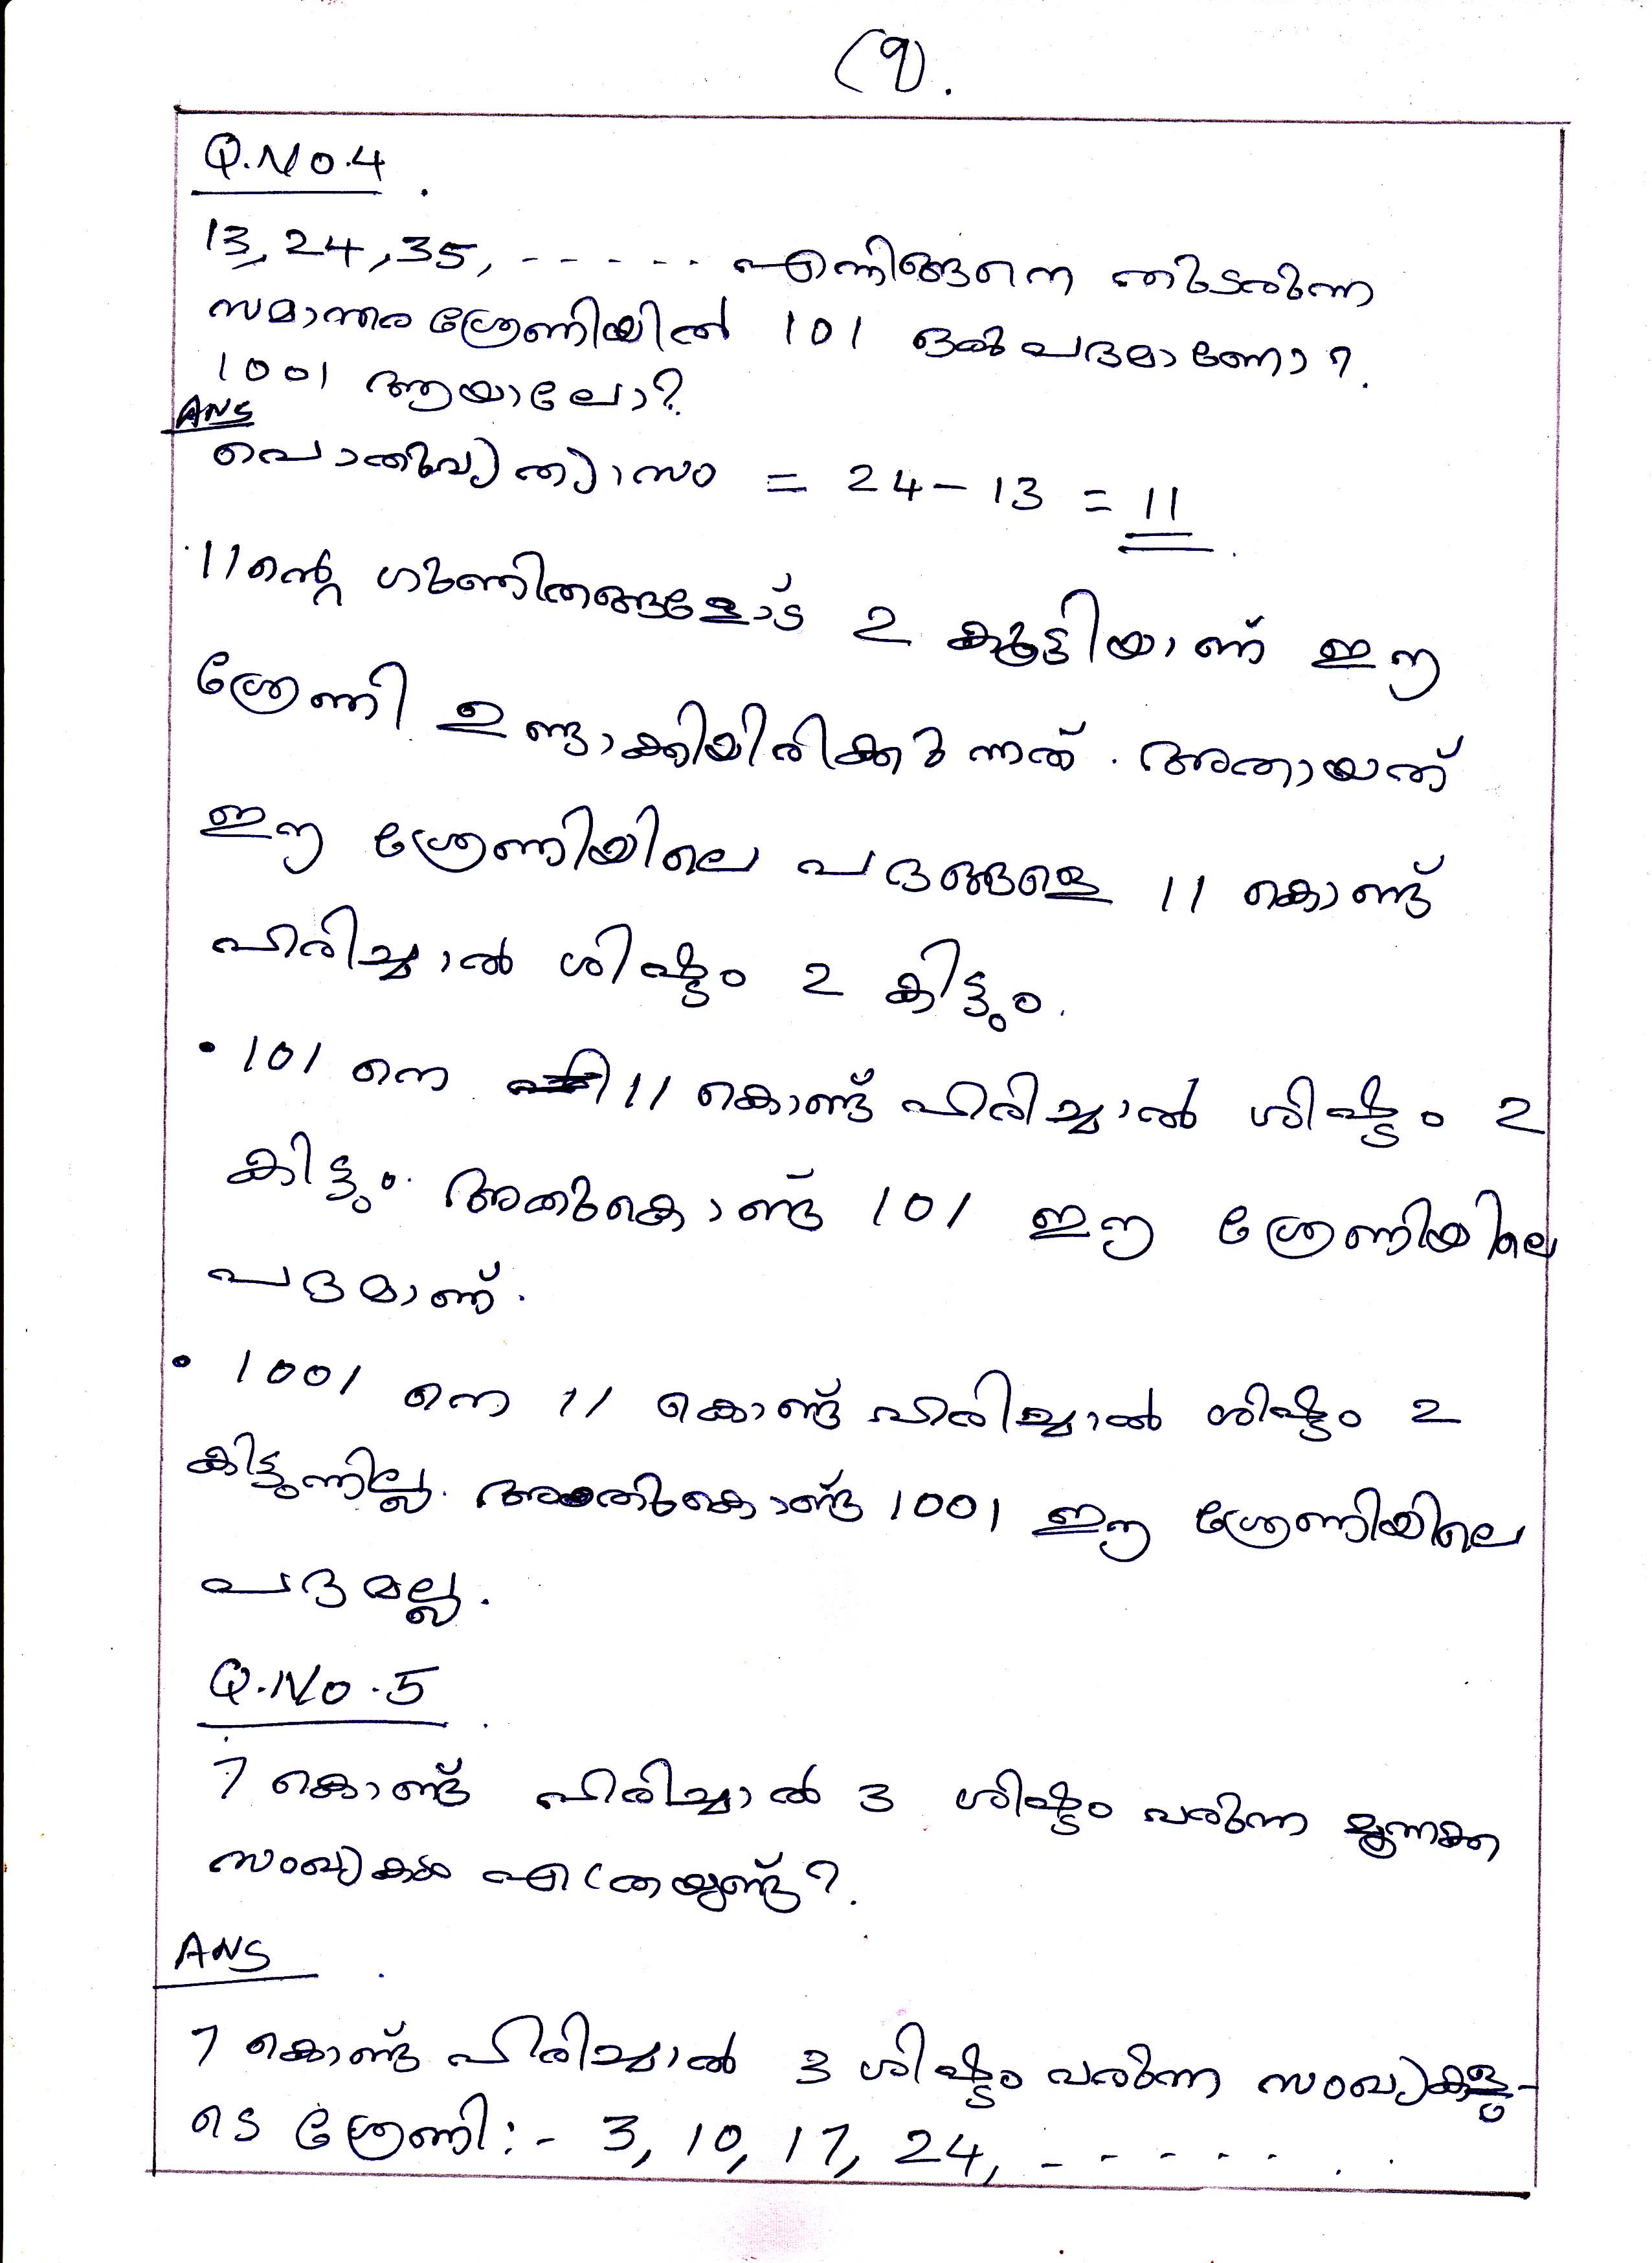 (9).
Q.No.4
13, 24, 35, - - - - - എന്നിങ്ങനെ തുടരുന്ന
സമാന്തരശ്രേണിയിൽ 101 ഒരു പദമാണോ?.
1001 ആയാലോ?.
ANS
പൊതുവ്യത്യാസം = 24 - 13 = 11
11ന്റെ ഗുണിതങ്ങളോട് 2 കൂട്ടിയാണ് ഈ
ശ്രേണി ഉണ്ടാക്കിയിരിക്കുന്നത്. അതായത്
ഈ ശ്രേണിയിലെ പദങ്ങളെ 11 കൊണ്ട്
ഹരിച്ചാൽ ശിഷ്ടം 2 കിട്ടും.
• 101 നെ 11 കൊണ്ട് ഹരിച്ചാൽ ശിഷ്ടം 2
കിട്ടും. അതുകൊണ്ട് 101 ഈ ശ്രേണിയിലെ
പദമാണ്.
• 1001 നെ 11 കൊണ്ട് ഹരിച്ചാൽ ശിഷ്ടം 2
കിട്ടുന്നില്ല. അതുകൊണ്ട് 1001 ഈ ശ്രേണിയിലെ
പദമല്ല.
Q.No.5
7 കൊണ്ട് ഹരിച്ചാൽ 3 ശിഷ്ടം വരുന്ന മൂന്നക്ക
സംഖ്യകൾ എത്രയുണ്ട്?.
ANS
7 കൊണ്ട് ഹരിച്ചാൽ 3 ശിഷ്ടം വരുന്ന സംഖ്യകളു-
ടെ ശ്രേണി:- 3, 10, 17, 24, - - - - - . .